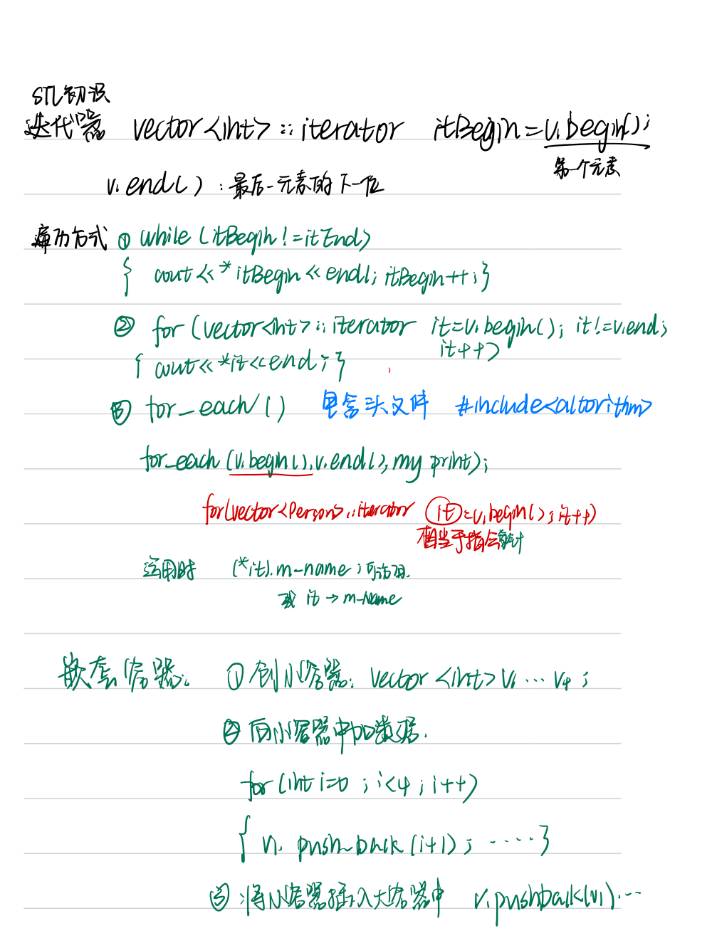 STL初识
迭代器 vector<int>::iterator itBegin=v.begin();
第一个元素
v.end():最后一元素的下一位
遍历方式 ① while (itBegin!=itEnd)
{ cout<<*itBegin<<endl; itBegin++;}
② for (vector<int>::iterator it=v.begin(); it!=v.end;
it++)
{ cout<<*it<<end;}
③ for_each() 包含头文件 #include<altorithm>
for_each(v.begin(),v.end(),my print);
for(vector<Person>::iterator it=v.begin();it++)
相当于指针
运用时 (*it).m-name;可访问
或 it→m-Name
嵌套容器. ①创小容器: vector<int>v1…v4;
②向小容器中加数据.
for(int i=0;i<4;i++)
{ v1.push-back(i+1); ……}
③将小容器插入大容器中 v.pushback(v1)…